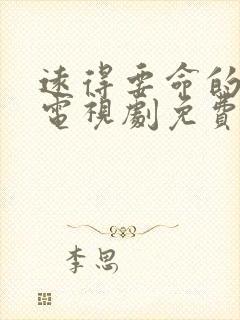 遠得要命的
電視劇免費
李思